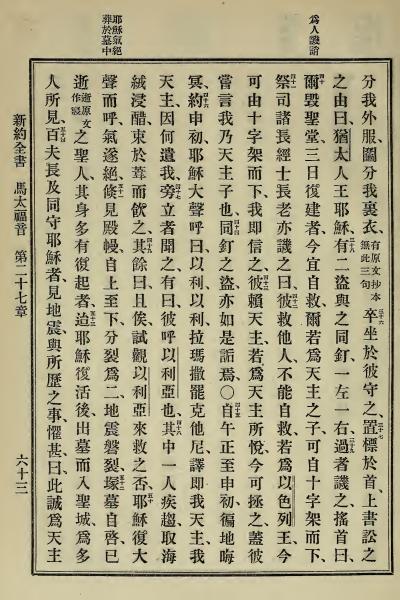 爲人譏誚
耶穌氣絕
葬於墓中
分我外服鬮分我裏衣、有原文抄本無此三句三十六卒坐於彼守之三十七置標於首上書訟之
之由曰猶太人王耶穌、三十八有二盜與之同釘一左一右三十九過者譏之搖首曰、
四十爾毀聖堂三日復建者今宜自救爾若爲天主之子可自十字架而下、
四十一祭司諸長經士長老亦譏之曰四十二彼救他人不能自救若爲以色列王今
可由十字架而下我即信之四十三彼賴天主若爲天主所悅今可拯之蓋彼
嘗言我乃天主子也四十四同釘之盜亦如是詬焉〇四十五自午正至申初徧地晦
冥四十六約申初耶穌大聲呼曰以利以利拉瑪撒罷克他尼譯即我天主我
天主因何遺我四十七旁立者聞之有曰彼呼以利亞也四十八其中一人疾趨取海
絨浸醋束於葦而飲之四十九其餘曰且俟試觀以利亞來救之否五十耶穌復大
聲而呼氣遂絕五十一倏見殿幔自上至下分裂爲二地震磐裂五十二塚墓自啓已
逝逝原文作寢之聖人其身多有復起者五十三迨耶穌復活後出墓而入聖城爲多
人所見五十四百夫長及同守耶穌者見地震與所歷之事懼甚曰此誠爲天主
新約全書 馬太福音 第二十七章 六十三